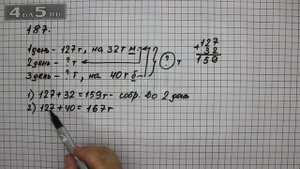 4DA5.RU
187.
1 день - 127 г, на 32 г м
2 день - ? г ? г
3 день - ? г, на 40 г б
+127
32
159
1) 127 + 32 = 159 г - собр. во 2 день
2) 127 + 40 = 167 г